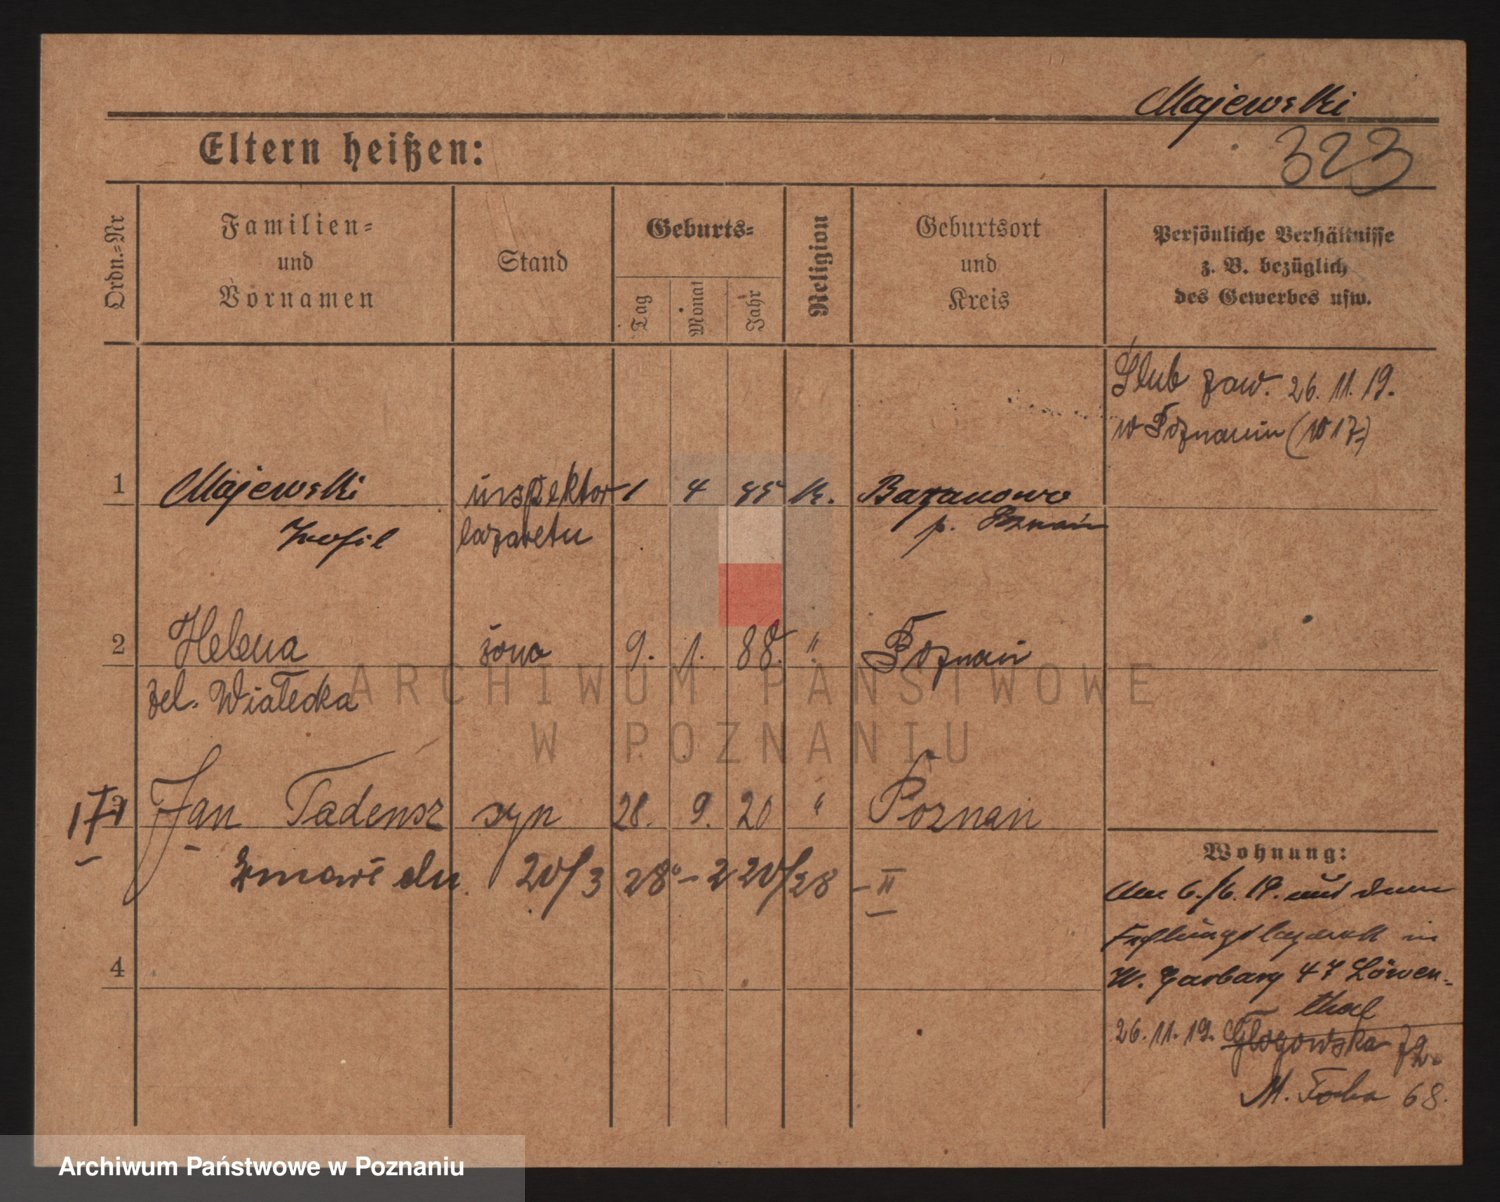 Majewski
323
Eltern heißen:
Ordn.-Nr
Familien-
und
Vornamen
Stand
Geburts-
Tag
Monat
Jahr
Religion
Geburtsort
und
Kreis
Persönliche Verhältnisse
z. B. bezüglich
des Gewerbes usw.
Ślub zaw. 26.11.19.
w Poznaniu (W 17)
1 Majewski inspektor 1 4 85 K. Baranowo
Teofil lazaretu p. Poznań
2 Helena żona 9. 1. 88. " Poznań
zel. Wiatecka
3 Jan Tadeusz syn 28. 9. 20 " Poznań
20/3 28 - 220/28 - II
4
Wohnung:
Am 6./6. 19. aus dem
Festungslazarett in
W. Garbary 47 Löwen-
thal
26.11.19. Głogowska 72.
M. Focha 68.
ARCHIWUM PAŃSTWOWE
W POZNANIU
Archiwum Państwowe w Poznaniu